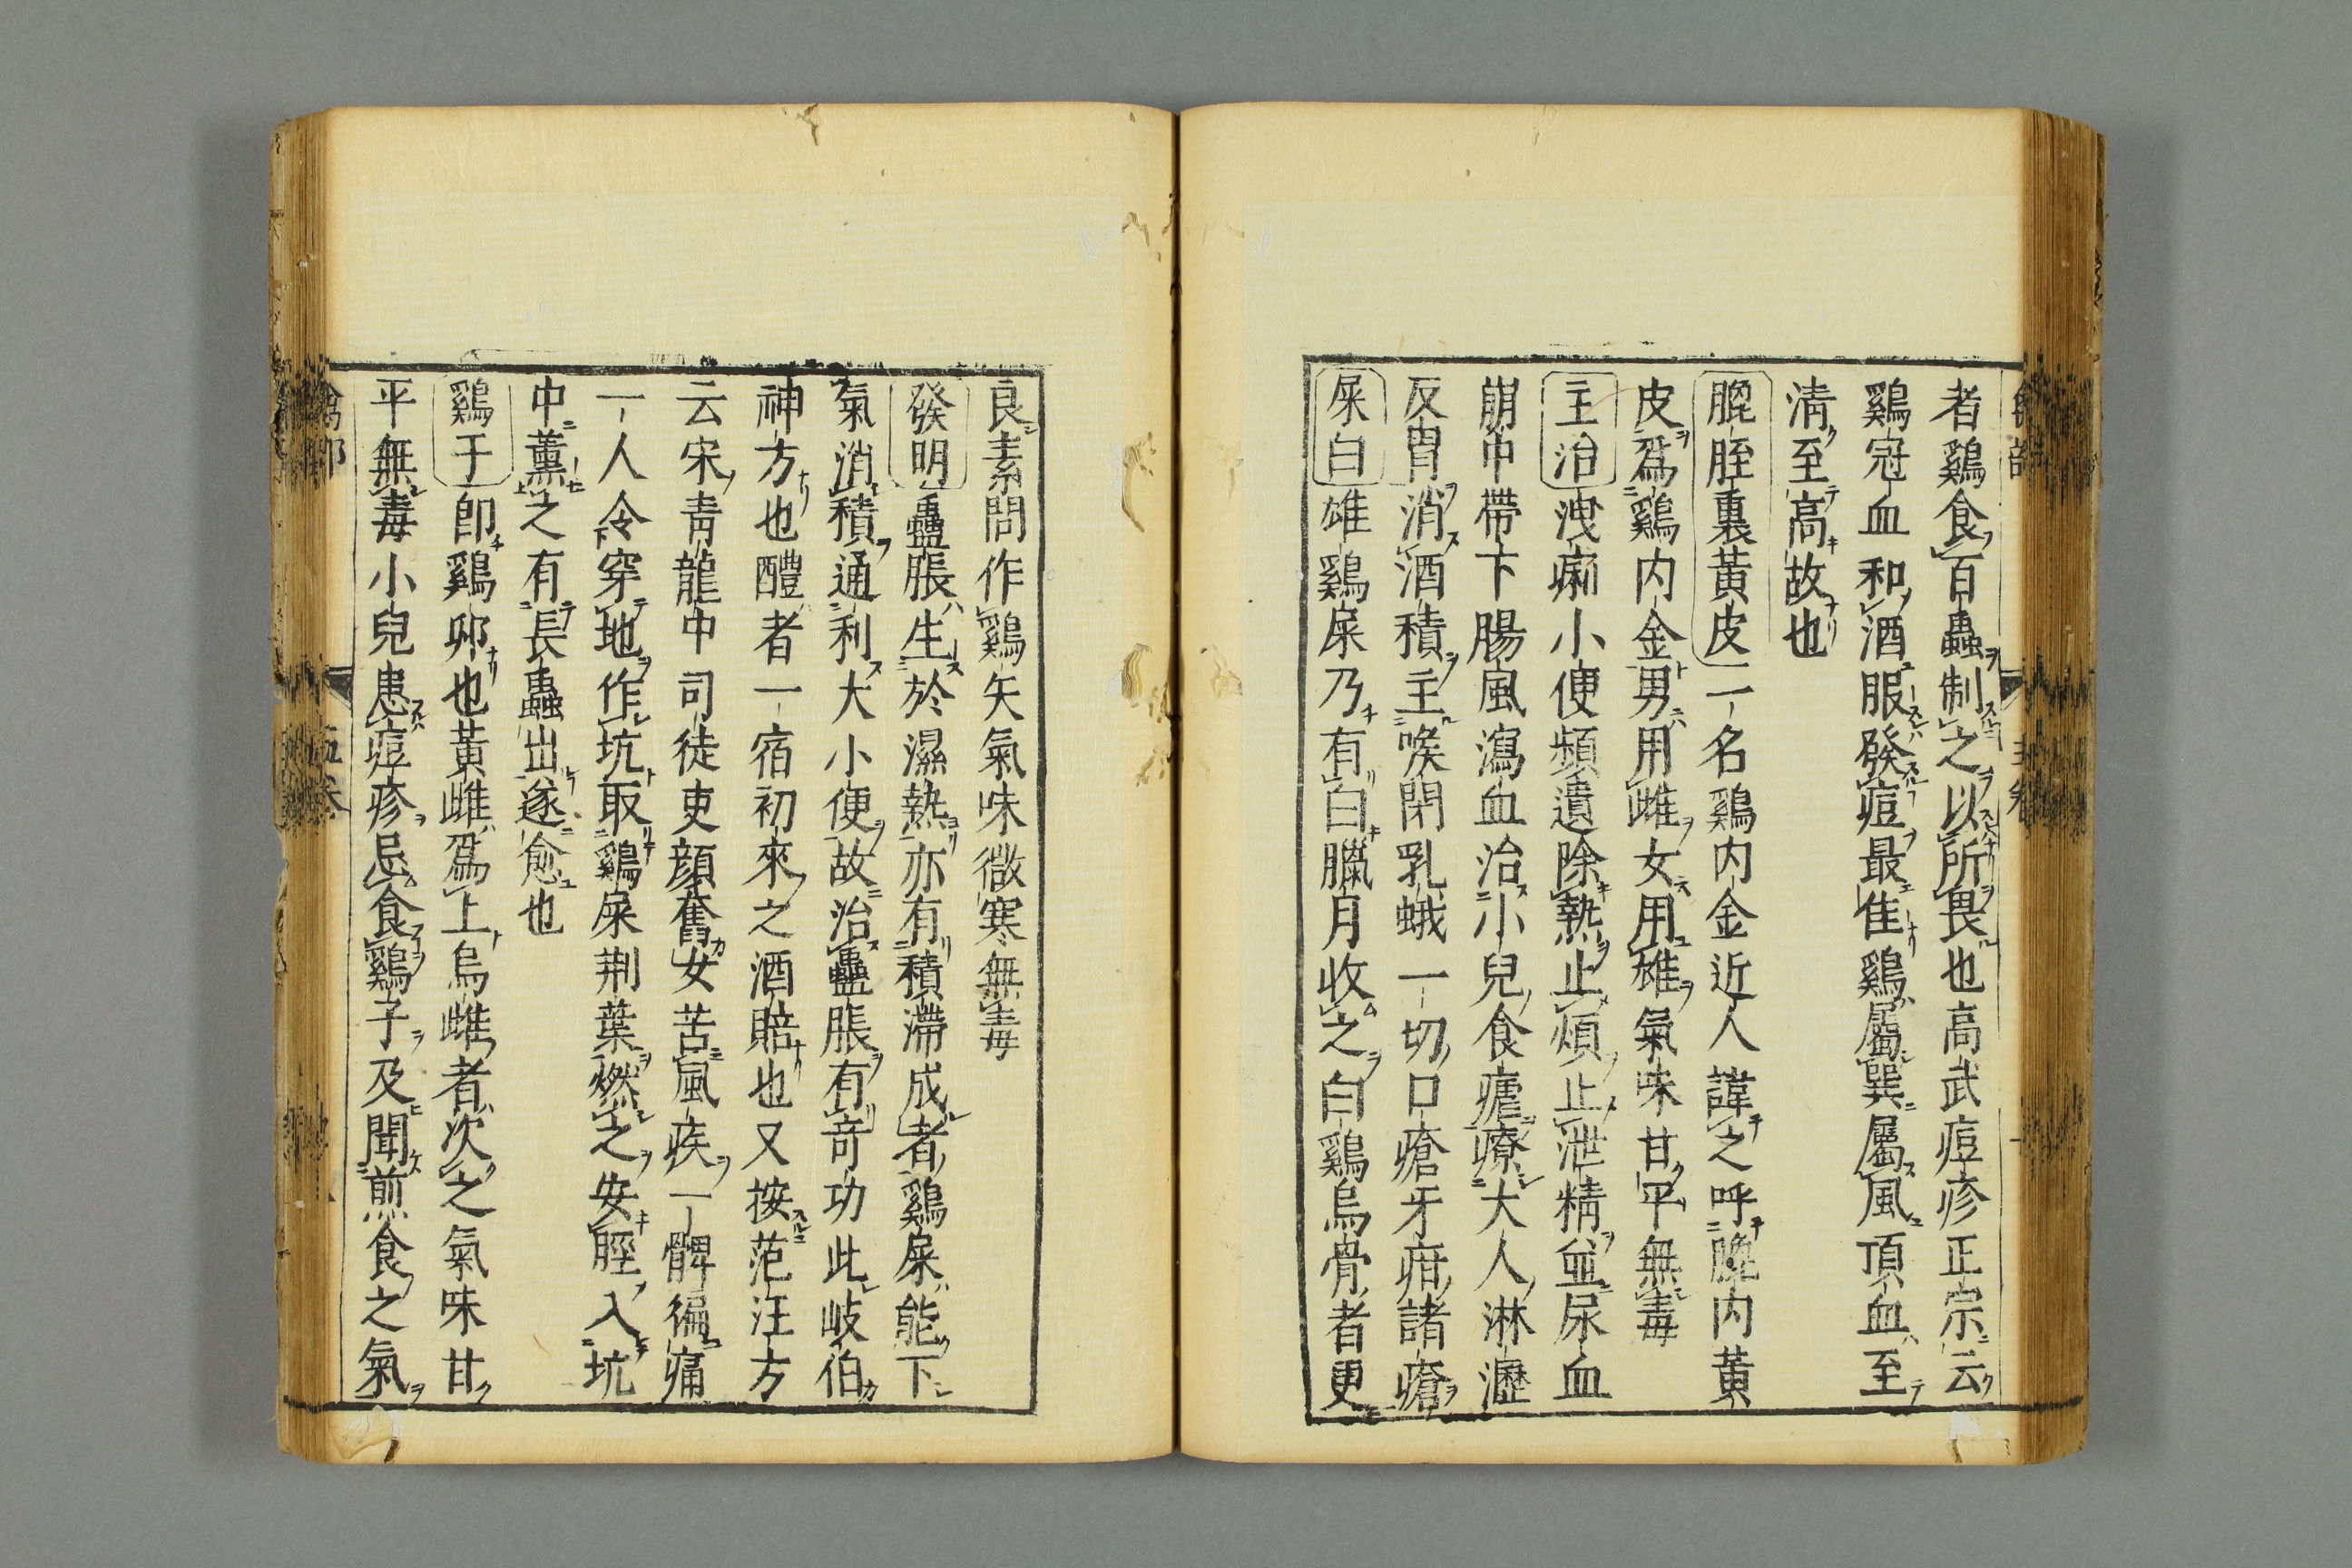 者鷄食百蟲制之以所畏也高武痘疹正宗云
鷄冠血和酒服發痘最佳鷄屬巽屬風頂血至
清至高故也
膍胵裏黃皮一名鷄内金近人諱之呼膍内黃
皮爲鷄内金男用雌女用雄氣味甘平無毒
主治洩痢小便頻遺除熱止煩止泄精並尿血
崩中帶下腸風瀉血治小兒食瘧療大人淋瀝
反胃消酒積主喉閉乳蛾一切口瘡牙疳諸瘡
屎白雄鷄屎乃有白臘月收之白鷄烏骨者更
良素問作鷄矢氣味微寒無毒
發明蠱脹生於濕熱亦有積滯成者鷄屎能下
氣消積通利大小便故治蠱脹有奇功此岐伯
神方也醴者一宿初來之酒賠也又按范汪方
云宋青龍中司徒吏顔奮女苦風疾一髀徧痛
一人令穿地作坑取鷄屎荆葉燃之安脛入坑
中薰之有長蟲出遂愈也
鷄子即鷄卵也黃雌爲上烏雌者次之氣味甘
平無毒小兒患痘疹忌食鷄子及聞煎食之氣
五卷